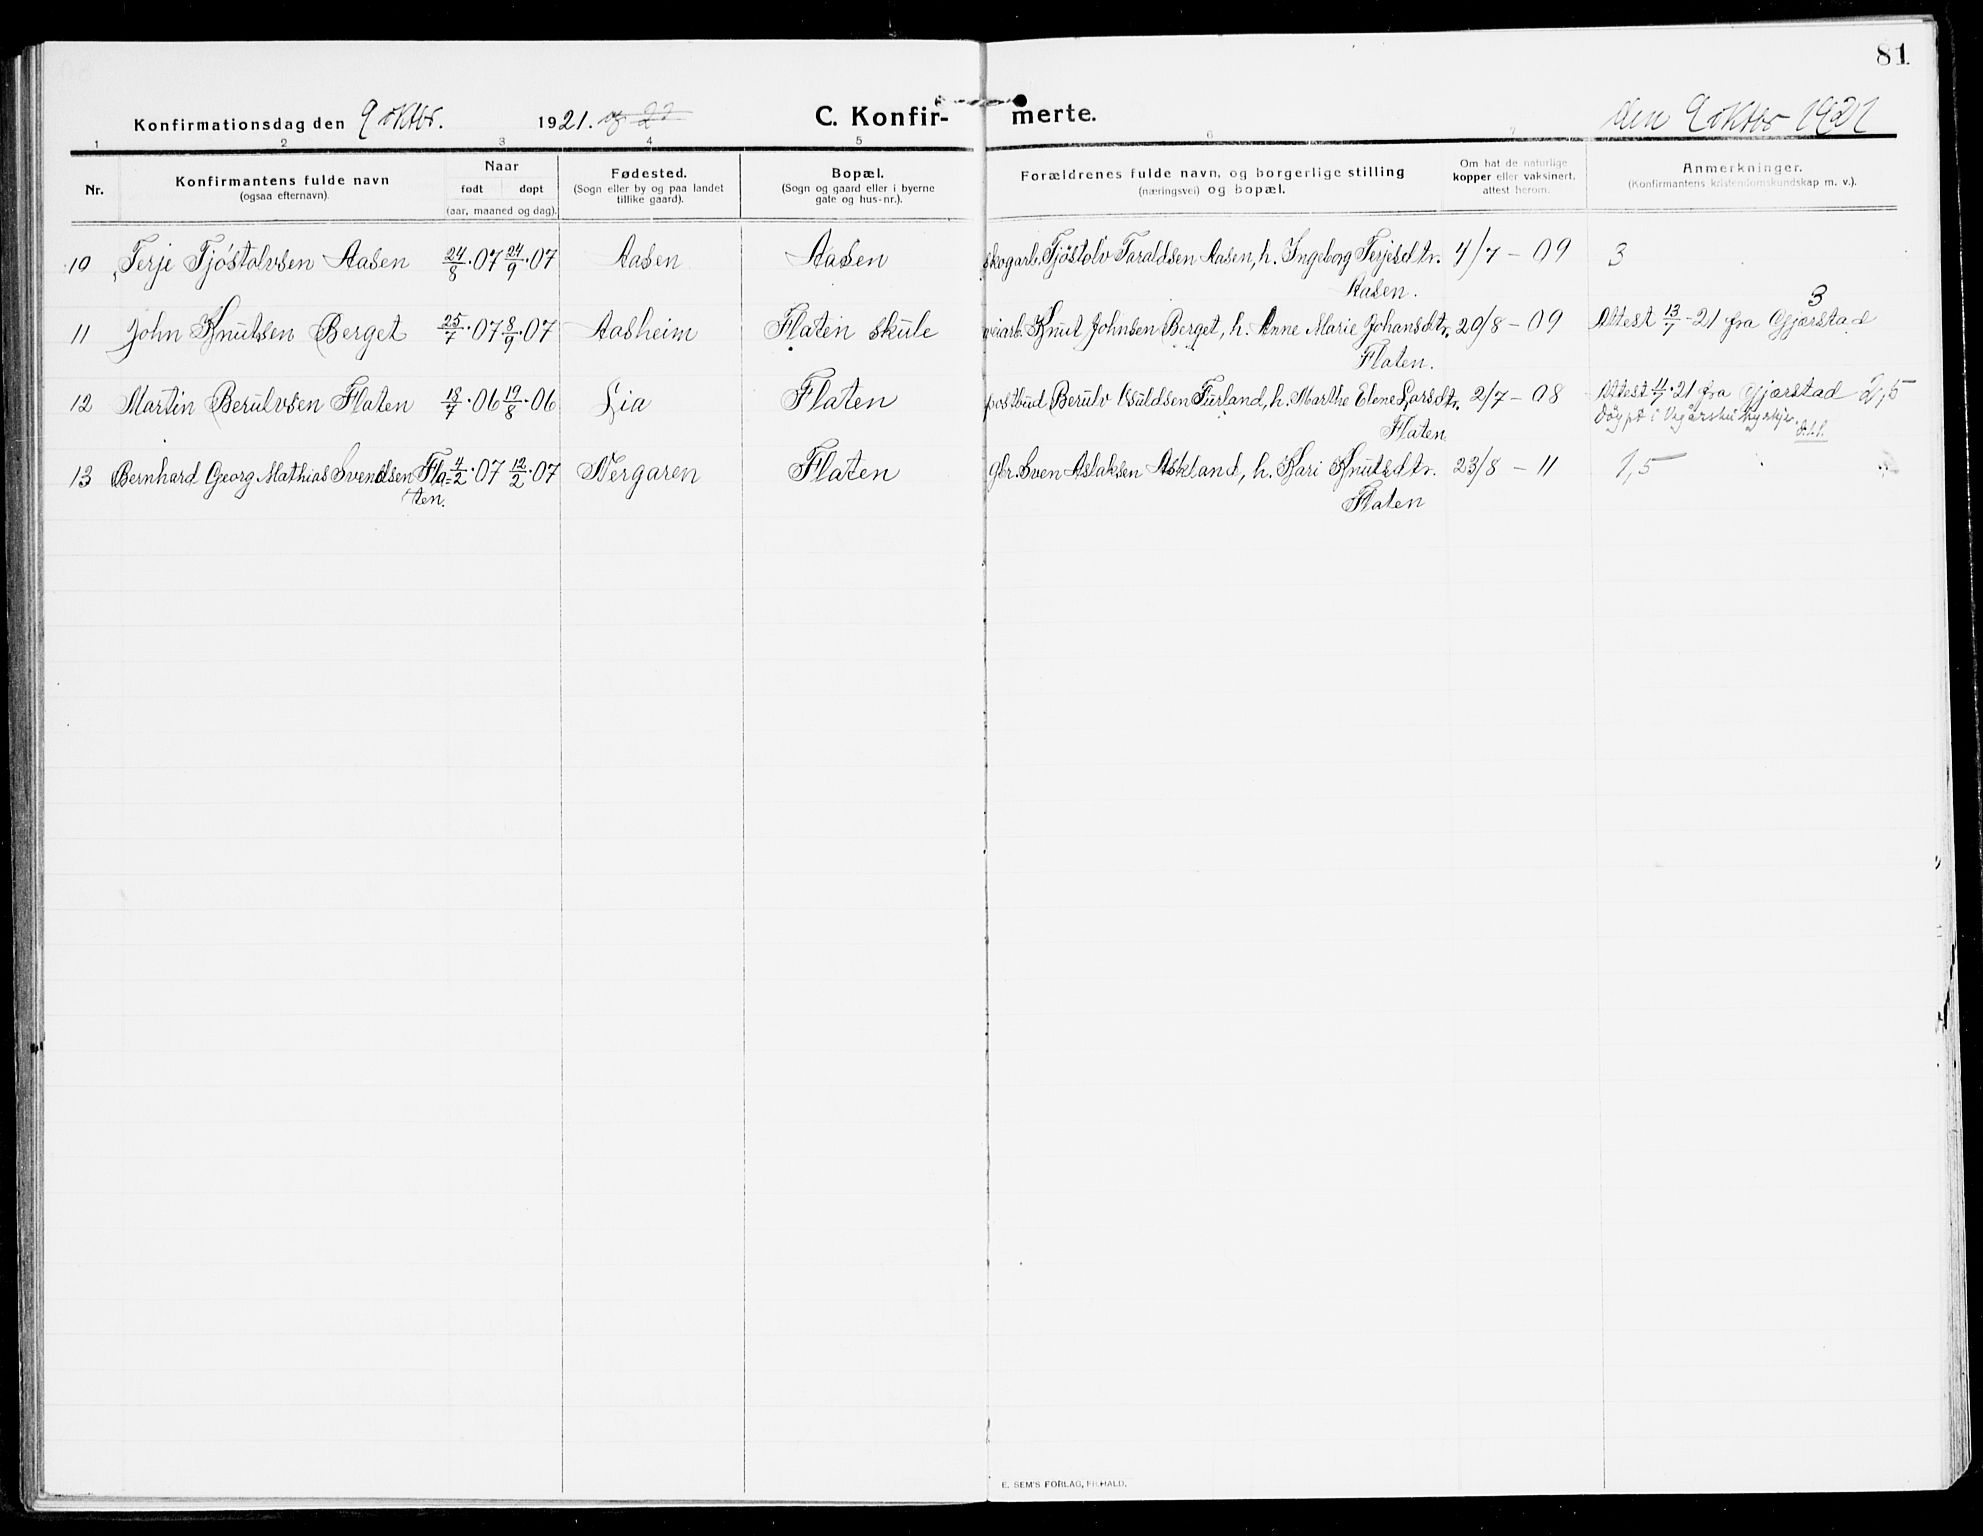 81
Konfirmationsdag den 9 oktbr. 1921. og 22
C. Konfirmerte.
den 9 oktbr 1921
1 2 3 4 5 6 7
Nr.
Konfirmantens fulde navn
(ogsaa efternavn).
Naar
født døpt
(aar, maaned og dag).
Fødested.
(Sogn eller by og paa landet
tillike gaard).
Bopæl.
(Sogn og gaard eller i byerne
gate og hus-nr.).
Forældrenes fulde navn, og borgerlige stilling
(næringsvei) og bopæl.
Om hat de naturlige
kopper eller vaksinert,
attest herom.
Anmerkninger.
(Konfirmantens kristendomskundskap m. v.).
10 Terje Tjöstolvsen Aasen 24/8.07 24/9.07 Aasen Aasen skogarb. Tjöstolv Taraldsen Aasen, h. Ingeborg Terjesdtr. 4/7 - 09 3
Aasen.
3
11 John Knutsen Berget 25/7.07 8/9.07 Aasheim Flaten skule veiarb. Knut Johnsen Berget, h. Anne Marie Johansdtr. 20/8 - 09 Attest 13/7-21 fra Gjærstad
Flaten.
12 Martin Berulvsen Flaten 18/7.06 19/8.06 Lia Flaten postbud Berulv Kuldsen Furland, h. Marthe Elene Larsdtr. 2/7 - 08 Attest 4/7.21 fra Gjærstad 2,5
Flaten. Döypt i Vegårshei kyrkje.
13 Bernhard Georg Mathias Svendsen Fla= 4/2.07 12/2.07 Nergaren Flaten gbr. Sven Aslaksen Askland, h. Kari Knutsdtr. 23/8 - 11 1,5
ten. Flaten
E. SEM'S FORLAG, FR.HALD.